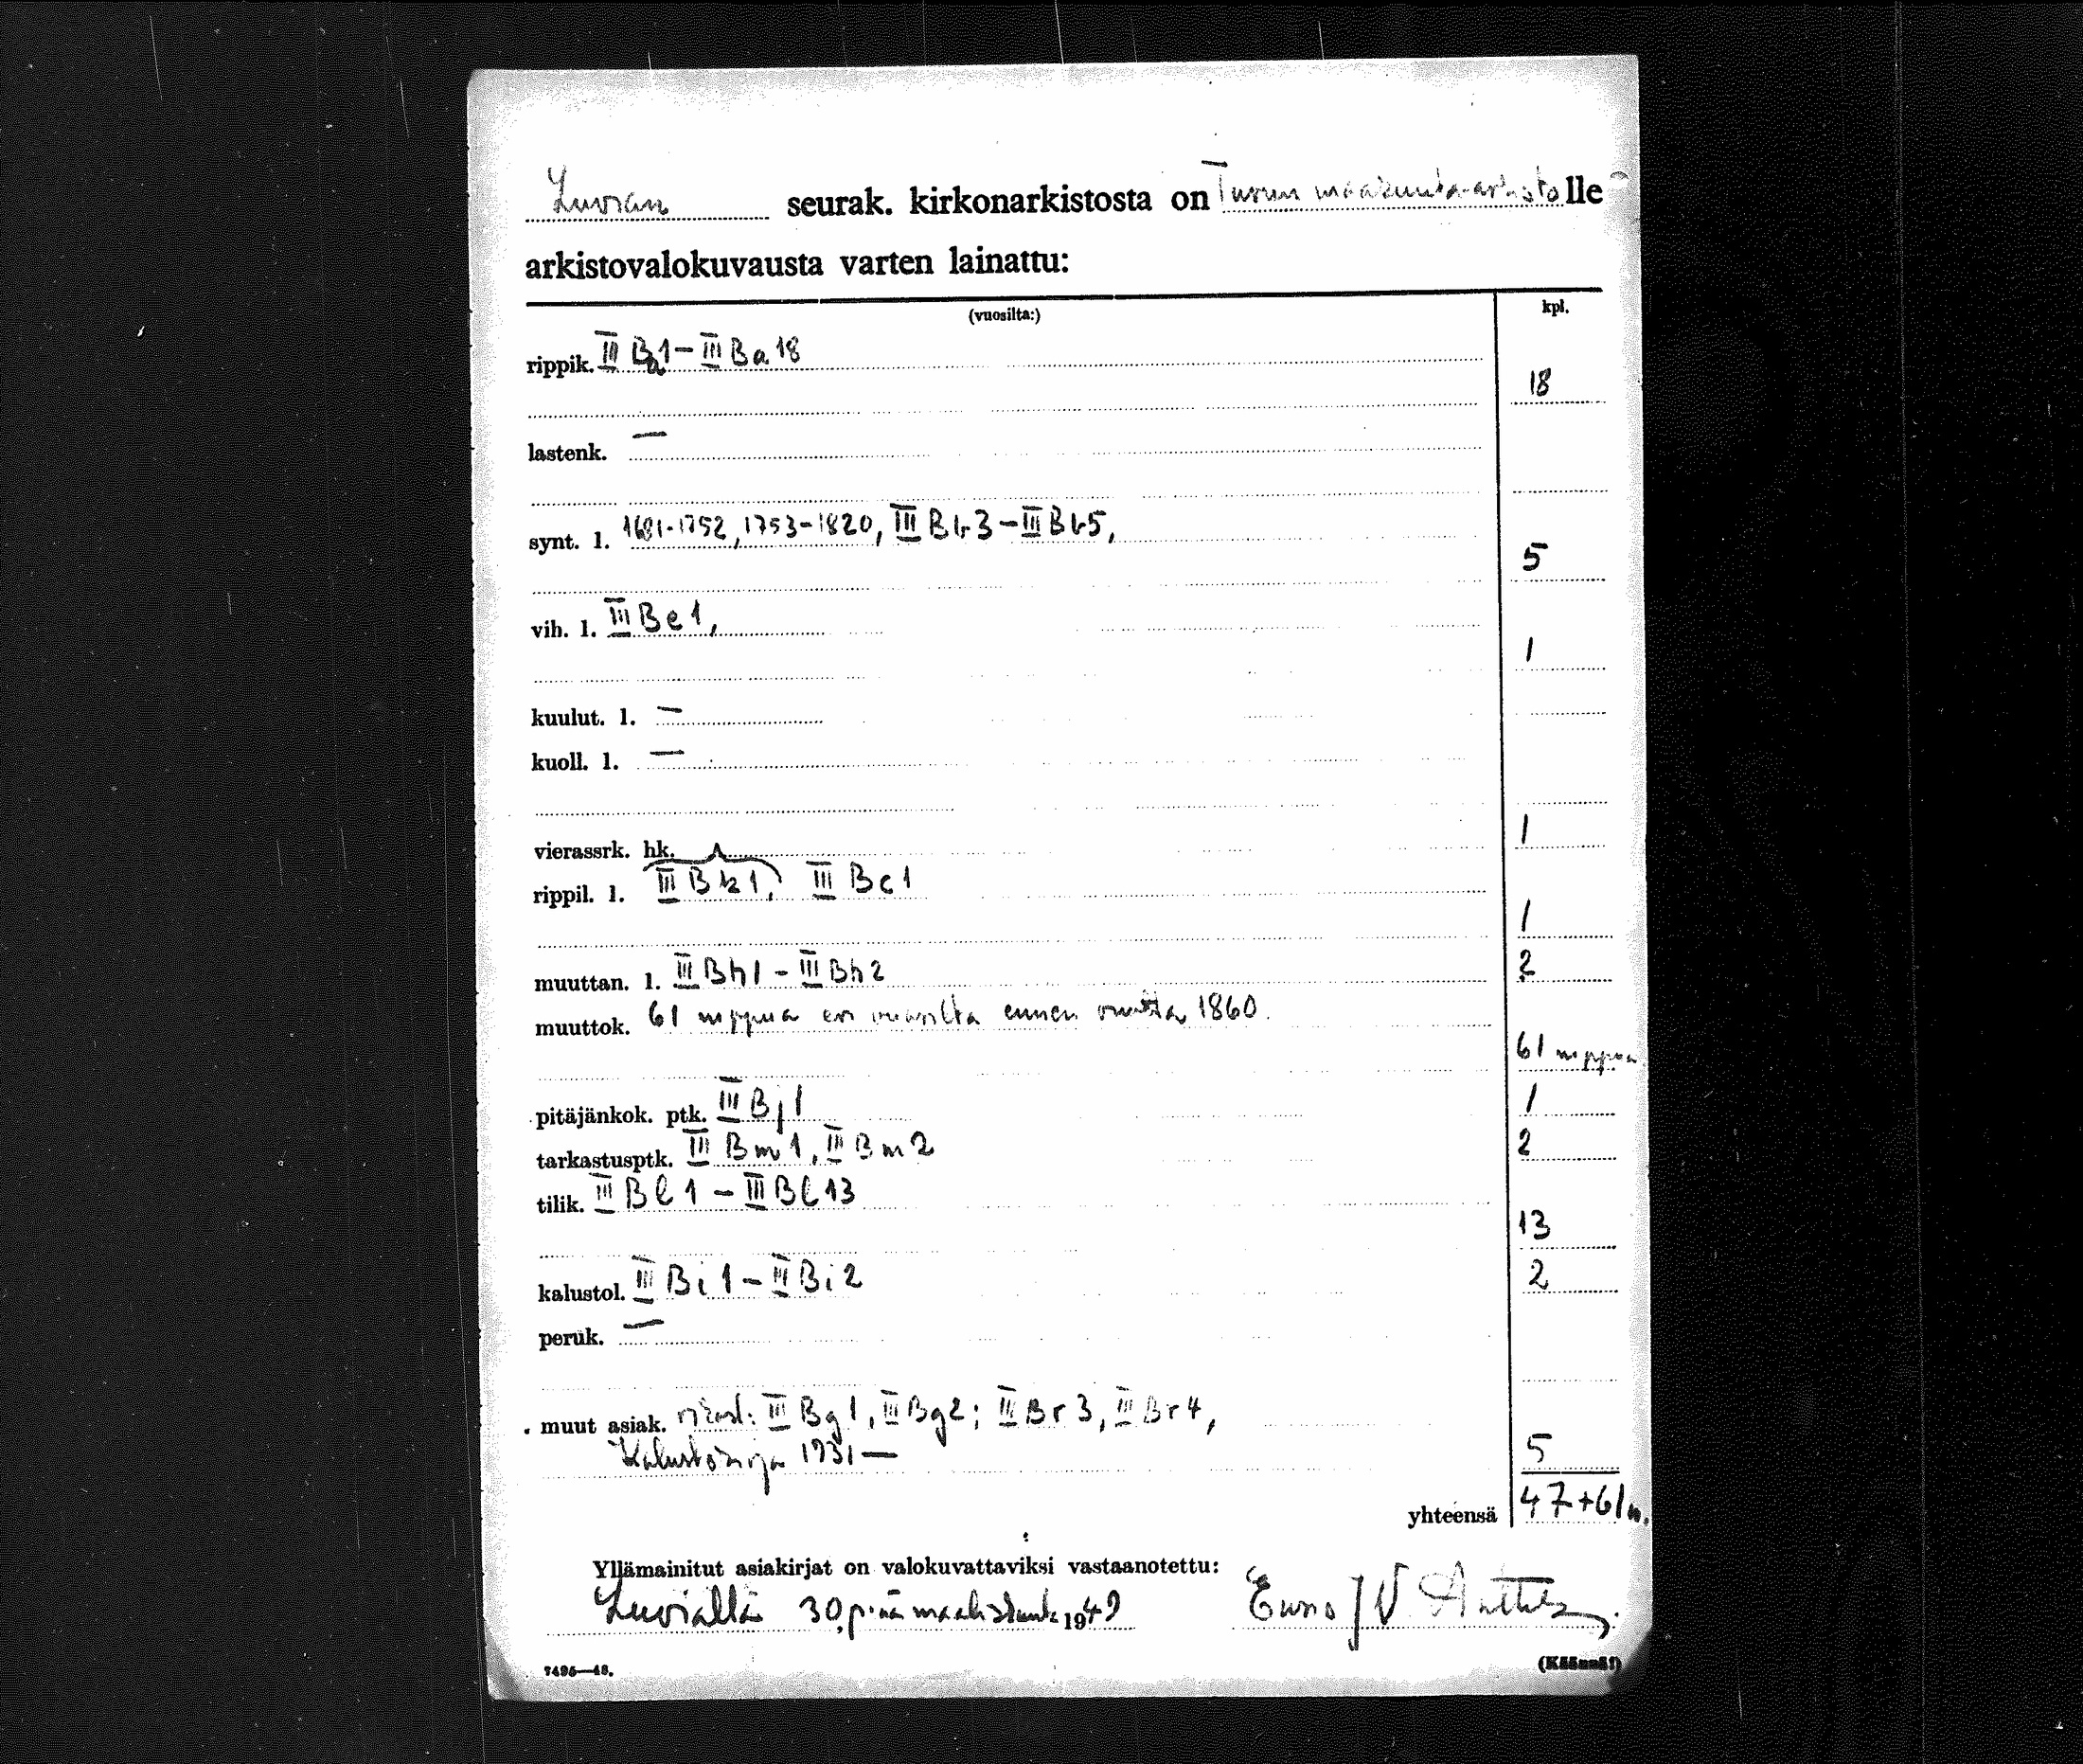 Luvian seurak. kirkonarkistosta on Turun maakunta-arkistolle
arkistovalokuvausta varten lainattu:
(vuosilta:) kpl.
rippik. III Ba1 – III Ba 18
18
lastenk. —
synt. l. 1691-1752, 1753-1820, III Bb3 – III Bb5,
5
vih. l. III Be1,
1
kuulut. l. —
kuoll. l. —
vierassrk. hk. 1
rippil. l. III Bk1, III Bc1
1
muuttan. l. III Bh1 – III Bh2 2
muuttok. 61 nippua eri vuosilta ennen vuotta 1860.
61 nippua
pitäjänkok. ptk. III Bj1 1
tarkastusptk. III Bm1, III Bm2 2
tilik. III Bl1 – III Bl13
13
kalustol. III Bi1 – III Bi2 2
peruk. —
muut asiak. III Bg1, III Bg2; III Br3, III Br4,
Kalustokirja 1931— 5
yhteensä 47+61 n.
Yllämainitut asiakirjat on valokuvattaviksi vastaanotettu:
Luvialla 30 p:nä maaliskuuta 1949 Euno J V
7495—48. (Käännä!)